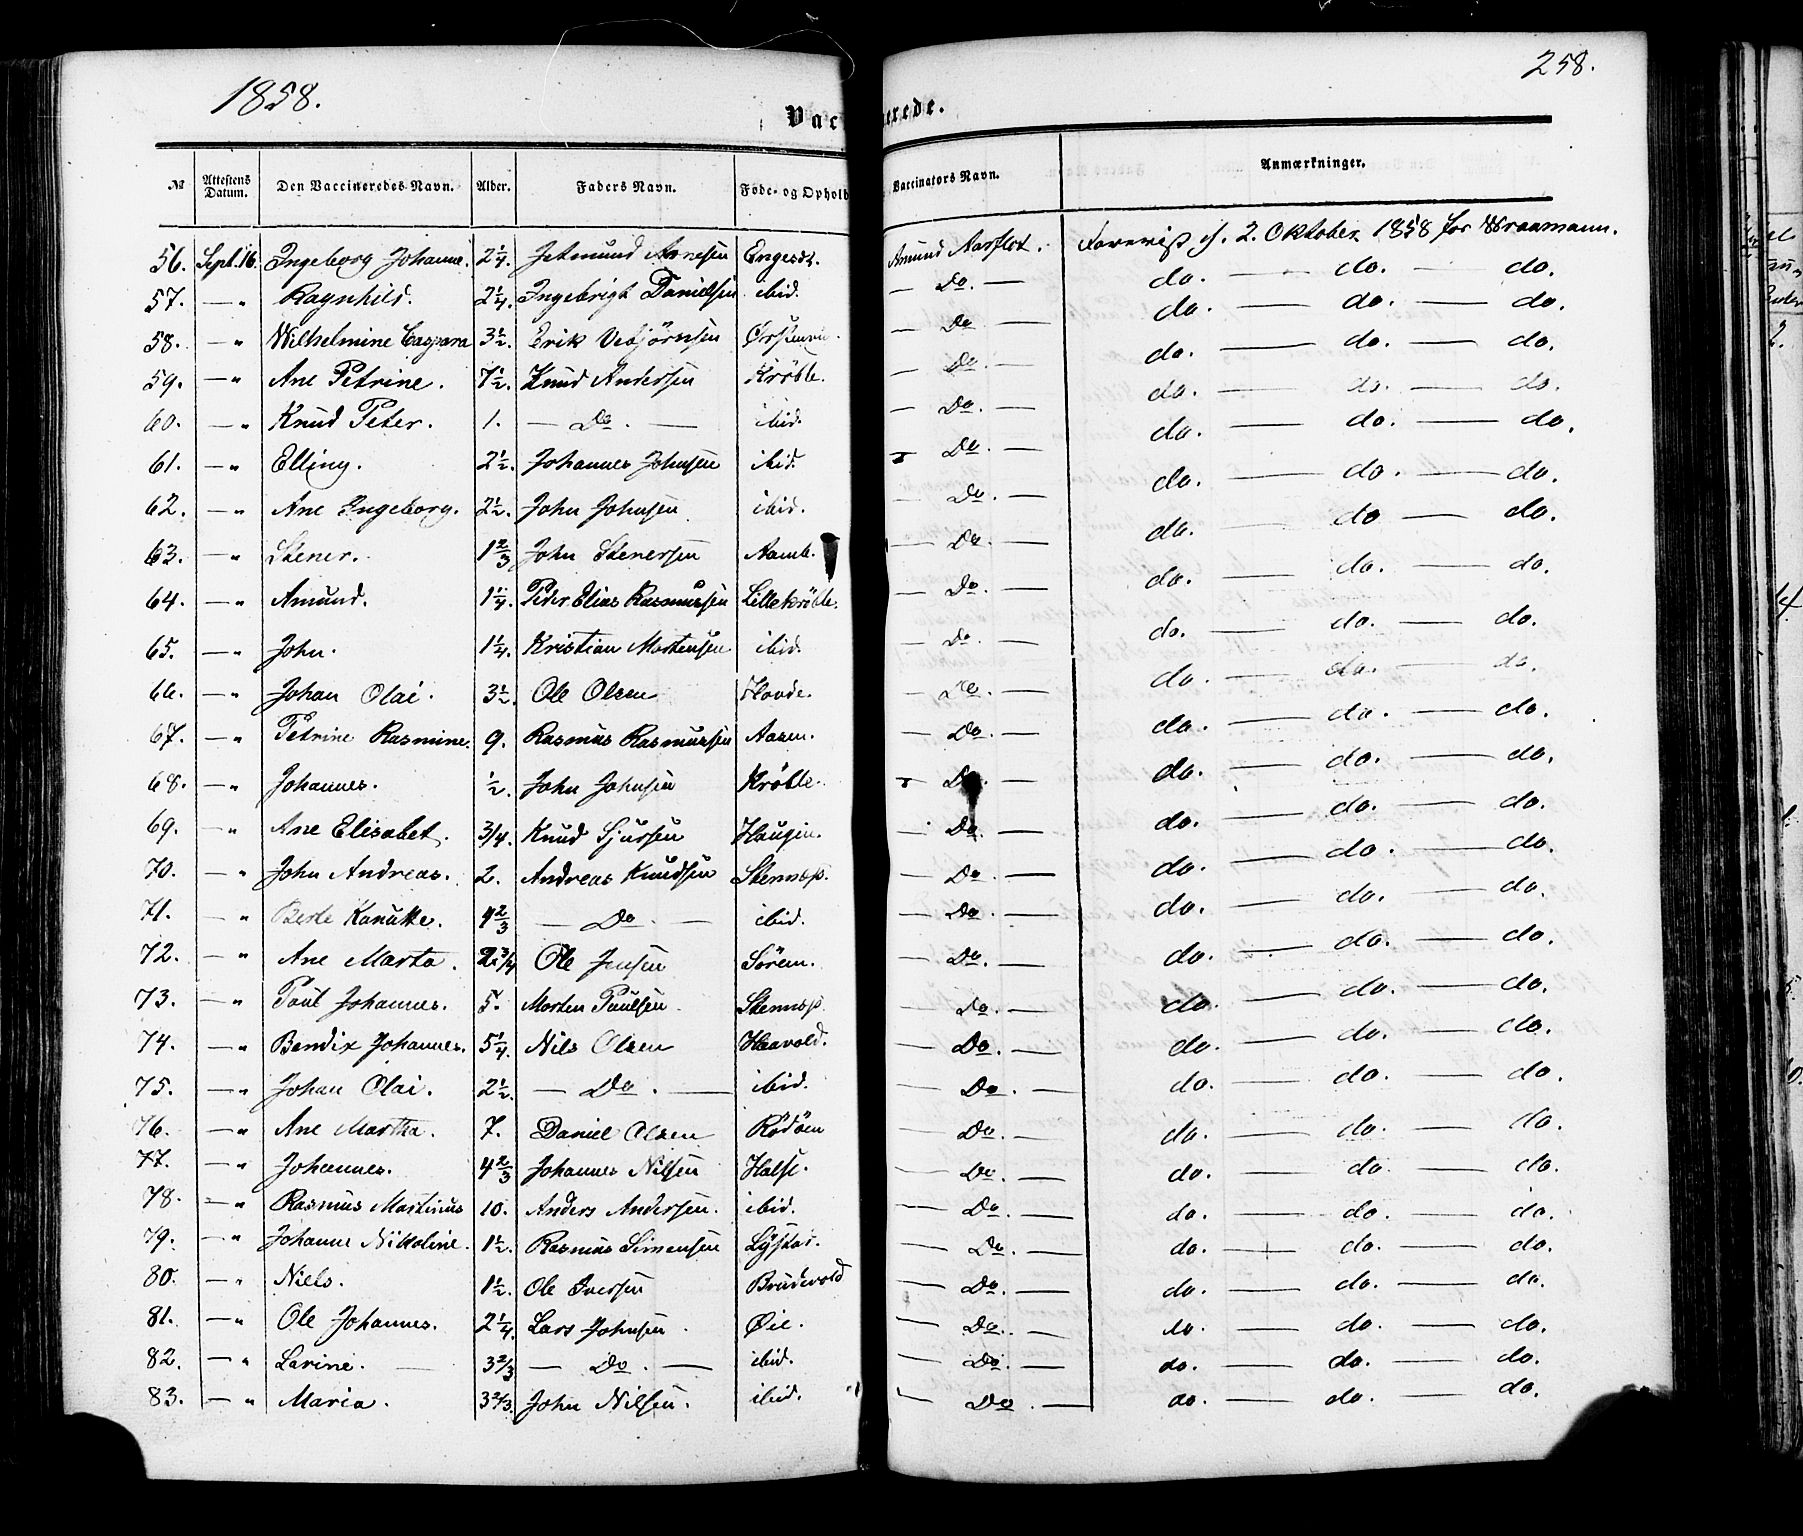 1858.
258.
Vac erede.
№ Attestens Datum. Den Vaccineredes Navn. Alder. Faders Navn. Føde- og Ophold Vaccinators Navn. Anmærkninger.
56. Sept. 16. Ingeborg Johanne. 2 1/4. Jetmund Arnesen Engeset. Amund Aarflot. Foreviist d. 2. Oktober 1858 for
57. — " Ragnhild. 2 1/4. Ingebrigt Danielsen ibid. — Do. — do. — do. — do.
58. — " Wilhelmine Caspara 3 1/2. Erik Vebjørnsen — Do. — do. — do. — do.
59. — " Ane Petrine. 7 1/2. Knud Andersen Krøble. — Do. — do. — do. — do.
60. — " Knud Peter. 1. — Do. — ibid. — Do. — do. — do. — do.
61. — " Elling. 2 1/2. Johannes Johnsen ibid. Do. — do. — do. — do.
62. — " Ane Ingeborg. 2 1/2. John Johnsen ibid. — Do. — do. — do. — do.
63. — " Stener. 1 2/3 John Stenersen — Do. — do. — do — do.
64. — " Amund. 1 1/4. Peder Elias Rasmussen Lillekrøble. — Do. — do. — do. — do.
65. — " John. 1 1/4. Kristian Mortensen ibid. — Do. — do. — do. — do.
66. — " Johan Olai. 3 1/2. Ole Olsen Hovde. — Do. — do. — do. — do.
67. — " Petrine Rasmine. 9. Rasmus Rasmussen Aasen. — Do. — do. — do. — do.
68. — " Johannes. 1/2. John Johnsen Krøble. Do. — do. — do. — do.
69. — " Ane Elisabet. 3/4. Knud Sjursen Haugen. Do. — do. — do. — do.
70. — " John Andreas. 2. Andreas Knudsen — Do. — do. — do. — do.
71. — " Berte Kanutte. 4 2/3 — Do. — ibid. — Do. — do. — do. — do.
72. — " Ane Marta. 2 3/4 Ole Jensen Søren. — Do. — do. — do. — do.
73. — " Poul Johannes. 5. Morten Paulsen — Do. — do. — do. — do.
74. — " Bendix Johannes. 5 1/4. Nils Olsen Haavold. — Do. — do. — do. — do.
75. — " Johan Olai. 2 1/2. — Do. — ibid. — Do. — do. — do. — do.
76. — " Ane Martha. 7. Daniel Olsen Rødøen — Do. — do. — do. — do.
77. — " Johannes. 4 2/3 Johannes Nilsen Halse. — Do. — do. — do. — do.
78. — " Rasmus Martinus 10. Anders Andersen. ibid. — Do. — do. — do. — do.
79. — " Johanne Nikoline. 1 1/2. Rasmus Simensen — Do. — do. — do. — do.
80. — " Niels. 1 1/2. Ole Iversen Brudevold — Do. — do. — do. — do.
81. — " Ole Johannes. 2 1/4. Lars Johnsen. Øie. — Do. — do. — do. — do.
82. — " Larine. — 3 2/3 — Do. — ibid. — Do. — do. — do. — do.
83. — " Maria. 3 2/3. John Nilsen. ibid. — Do. — do. — do. — do.